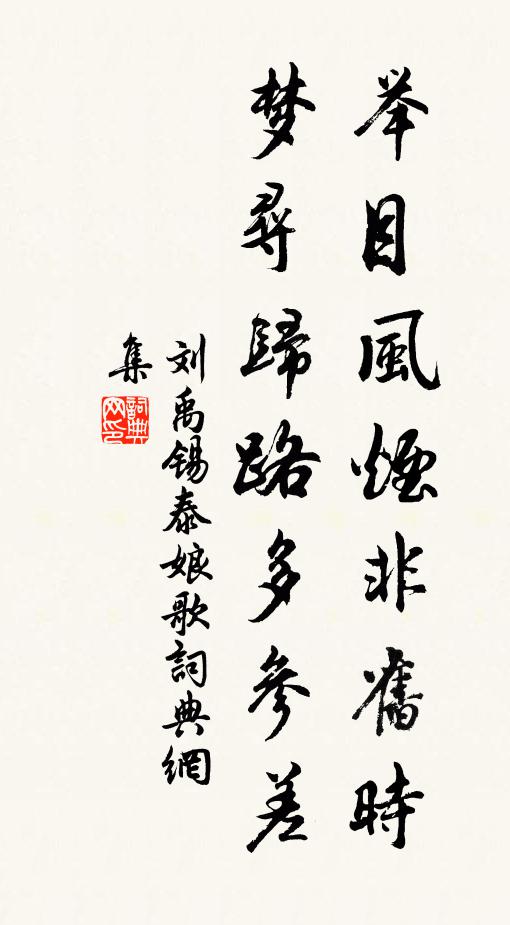 举目風煙非舊時
梦尋歸路多參差
刘禹锡泰娘歌詞典網
集
詞典
网印